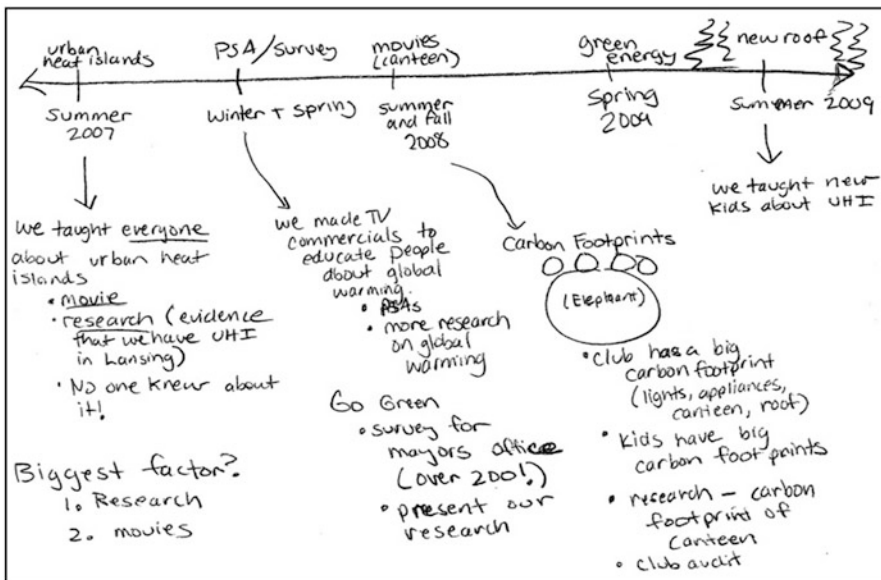 urban
heat islands
PSA/survey
movies
(canteen)
green
energy
new roof
Summer
2007
winter + spring
summer
and fall
2008
spring
2009
summer 2009
we taught everyone
about urban heat
islands
• movie
• research (evidence
that we have UHI
in Lansing)
• No one knew about
it!
Biggest factor?
1. Research
2. movies
we made TV
commercials to
educate people
about global
warming.
• PSAs
• more research
on global
warming
Go Green
• survey for
mayors office
(over 200!)
• present our
research
Carbon Footprints
(Elephant)
• club has a big
carbon footprint
(lights, appliances,
canteen, roof)
• kids have big
carbon foot prints
• research - carbon
footprint of
canteen
• club audit
we taught new
kids about UHI